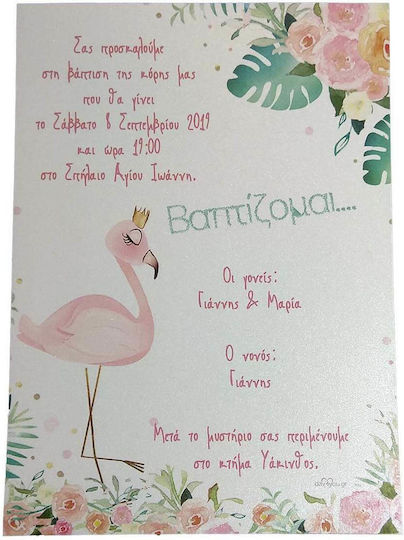 Σας προσκαλούμε
στη βάπτιση της κόρης μας
που θα γίνει
το Σάββατο 8 Σεπτεμβρίου 2019
και ωρα 19:00
στο Σπήλαιο Αγίου Ιωάννη.
Βαπτίζομαι....
Οι γονείς:
Γιάννης & Μαρία
Ο νονός:
Γιάννης
Μετά το μυστήριο σας περιμένουμε
στο κτήμα Υάκινθος.